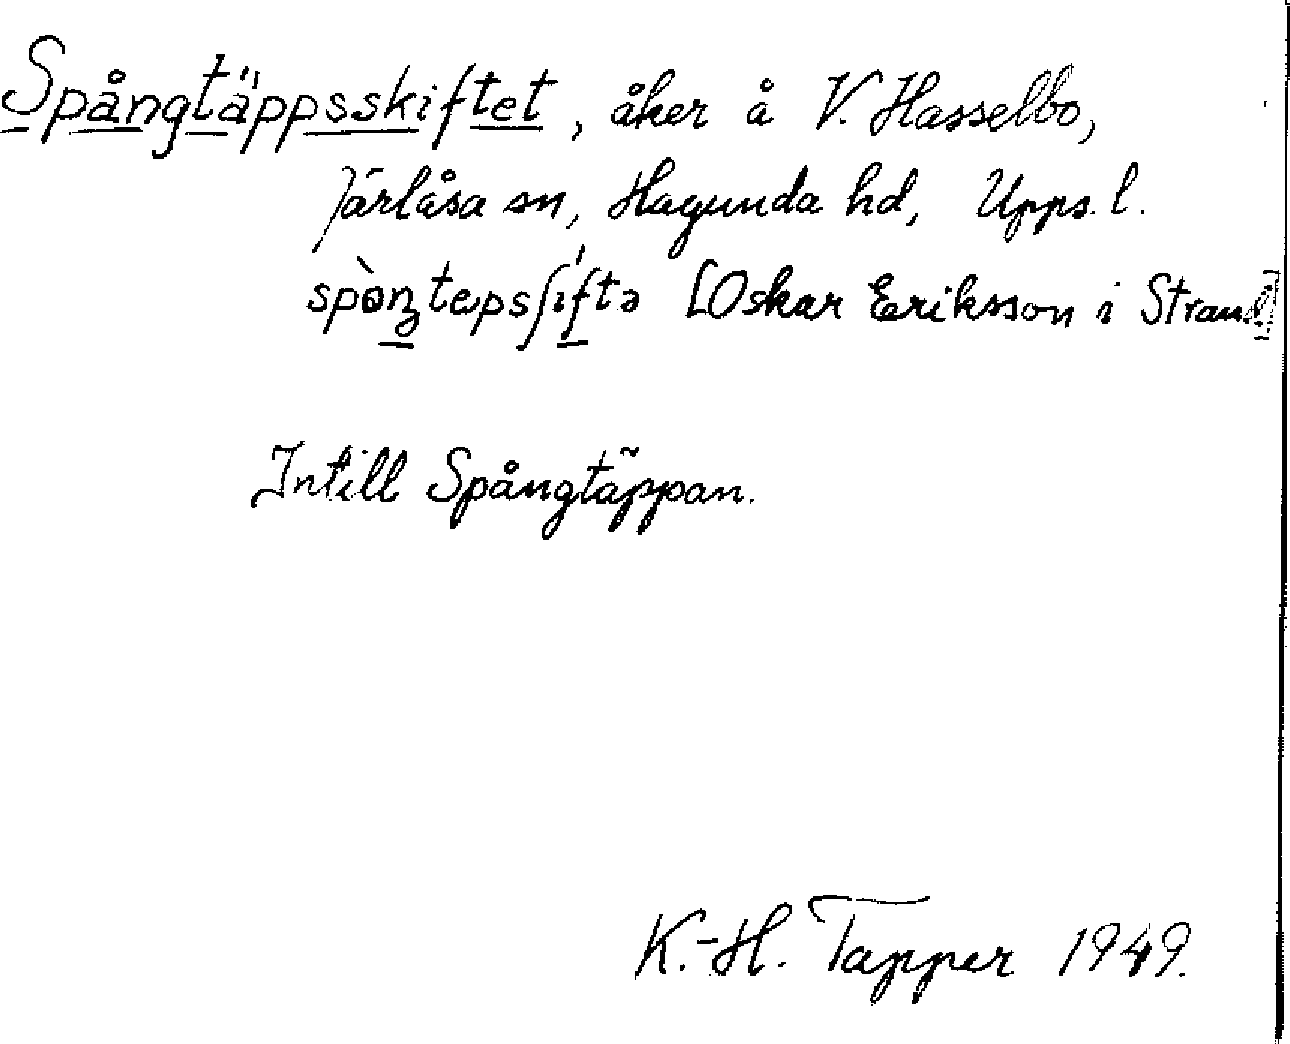 Spångtäppsskiftet, åker å V. Hasselbo,
Järlåsa sn, Hagunda hd, Upps. l.
spòŋtepsʃíftə [Oskar Eriksson i Strand]
Intill Spångtäppan.
K.-H. Tapper 1949.